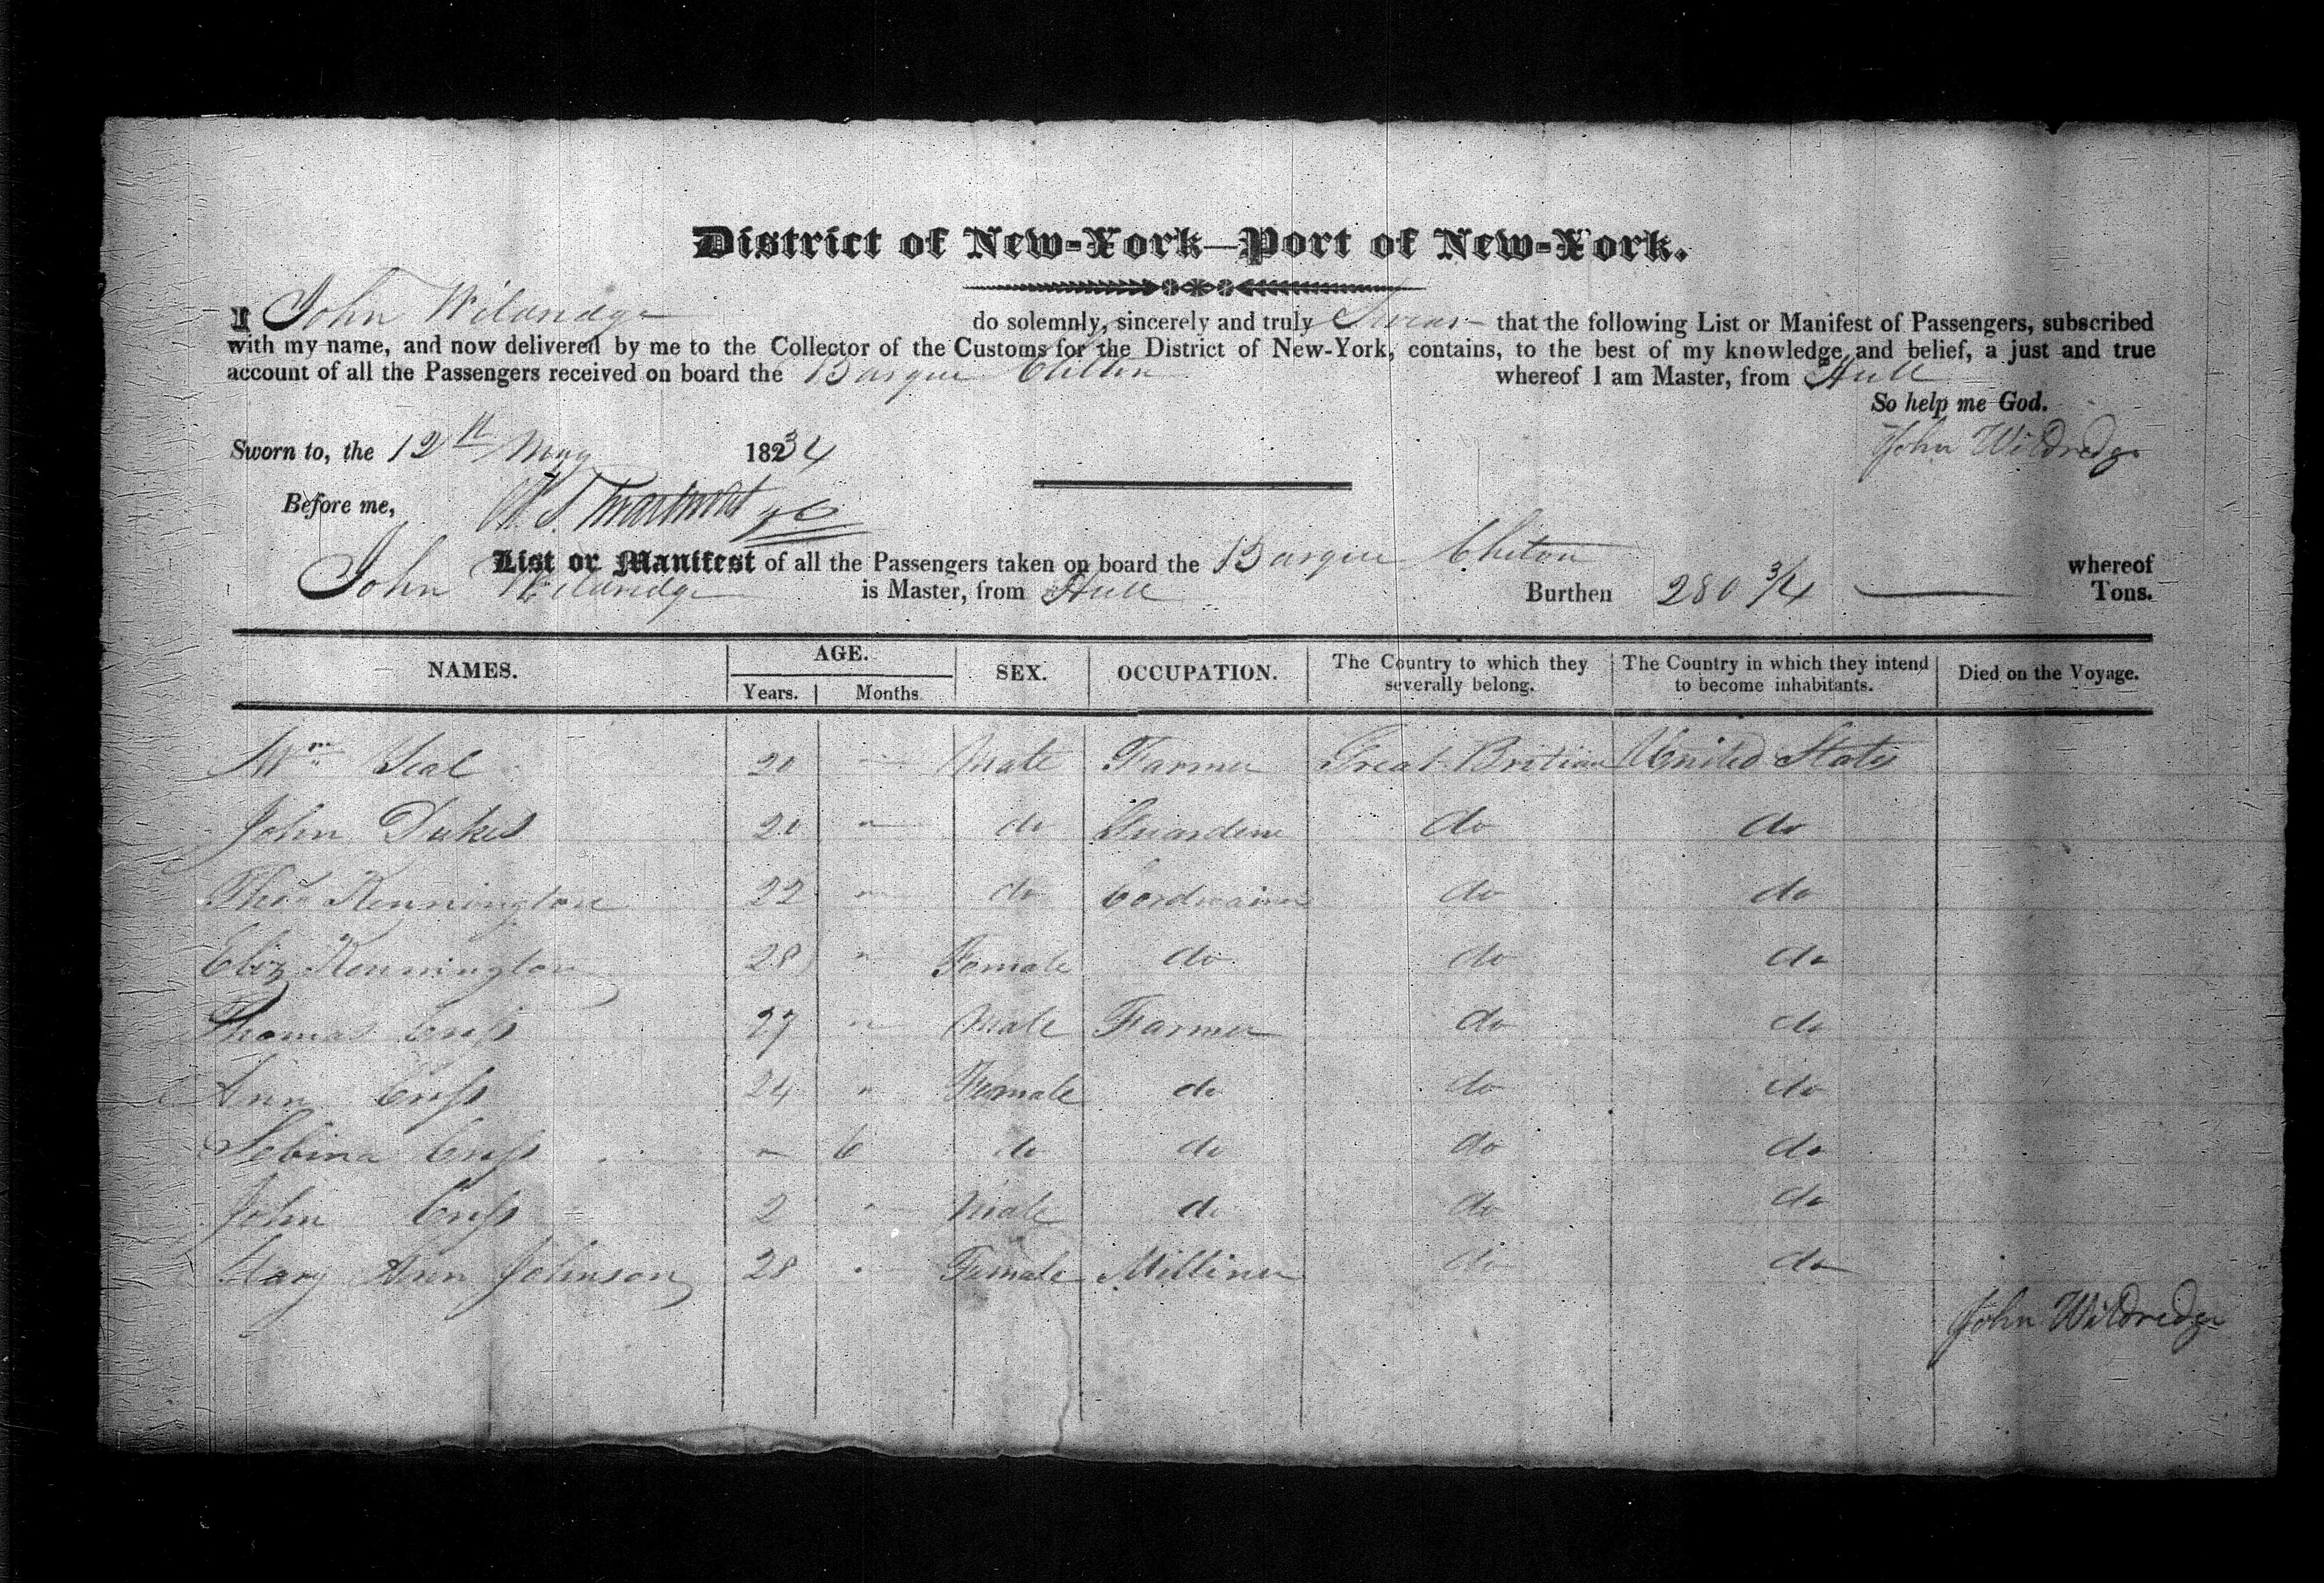 District of New-York—Port of New-York.
I John Wildridge do solemnly, sincerely and truly Swear that the following List or Manifest of Passengers, subscribed
with my name, and now delivered by me to the Collector of the Customs for the District of New-York, contains, to the best of my knowledge and belief, a just and true
account of all the Passengers received on board the Barque whereof I am Master, from Hull
So help me God.
Sworn to, the 12th May 18234 John Wildredge
Before me,
List or Manifest of all the Passengers taken on board the Barque whereof
John Wildridge is Master, from Hull Burthen 280 3/4 Tons.
NAMES. AGE. SEX. OCCUPATION. The Country to which they severally belong. The Country in which they intend to become inhabitants. Died on the Voyage.
Years. Months.
Wm 20 " Male Farmer Great Britian United States
John Dukes 20 " do do do
Thos Kennington 22 " do Cordwainer do do
Eliz Kennington 28 " Female do do do
Thomas 27 " Male Farmer do do
Ann 24 " Female do do do
Sebina " 6 do do do do
John 2 " Male do do do
Mary Ann Johnson 28 " Female Milliner do do
John Wildredge